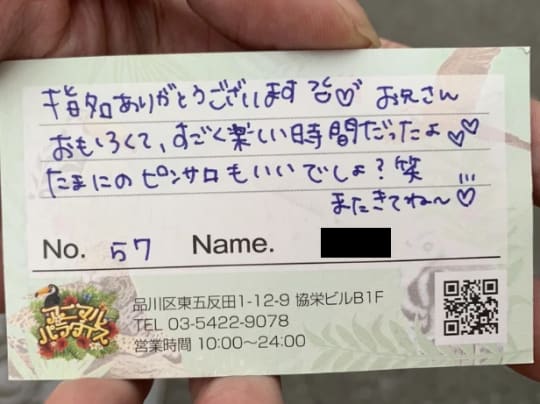 指名ありがとうございます♡ お兄さん
おもしろくて、すごく楽しい時間だったよ♡♡
たまにのピンサロもいいでしょ?笑 ...
またきてね〜♡
No. 57 Name.
アニマル
パラダイス
品川区東五反田1-12-9 協栄ビルB1F
TEL 03-5422-9078
営業時間 10:00〜24:00